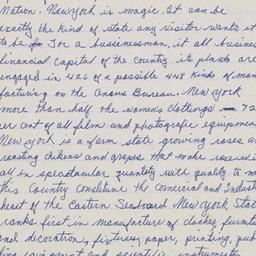 Nation. New york is magic. It can be
exactly the kind of state any visitor wants it
to be. For a bussinessman, it all business
financial capital of the country its plants are
engaged in 421 of a possible 448 kinds of man
facturing on the Census Bureau. New York
more than half the women's clothings — 72
er cent of all film and photografic equipmen
New York is a farm state growing roses a
roasting chikens and grapes that make
all in spectacular quantity with quality to m
this Country constitute the Comercial and Indust
heart of the Eastern Seaboard New York Stat
ranks first in manufacture of clothes, furnitu
and decoration, fixtures, paper, printing, pub
and scientific instrumen